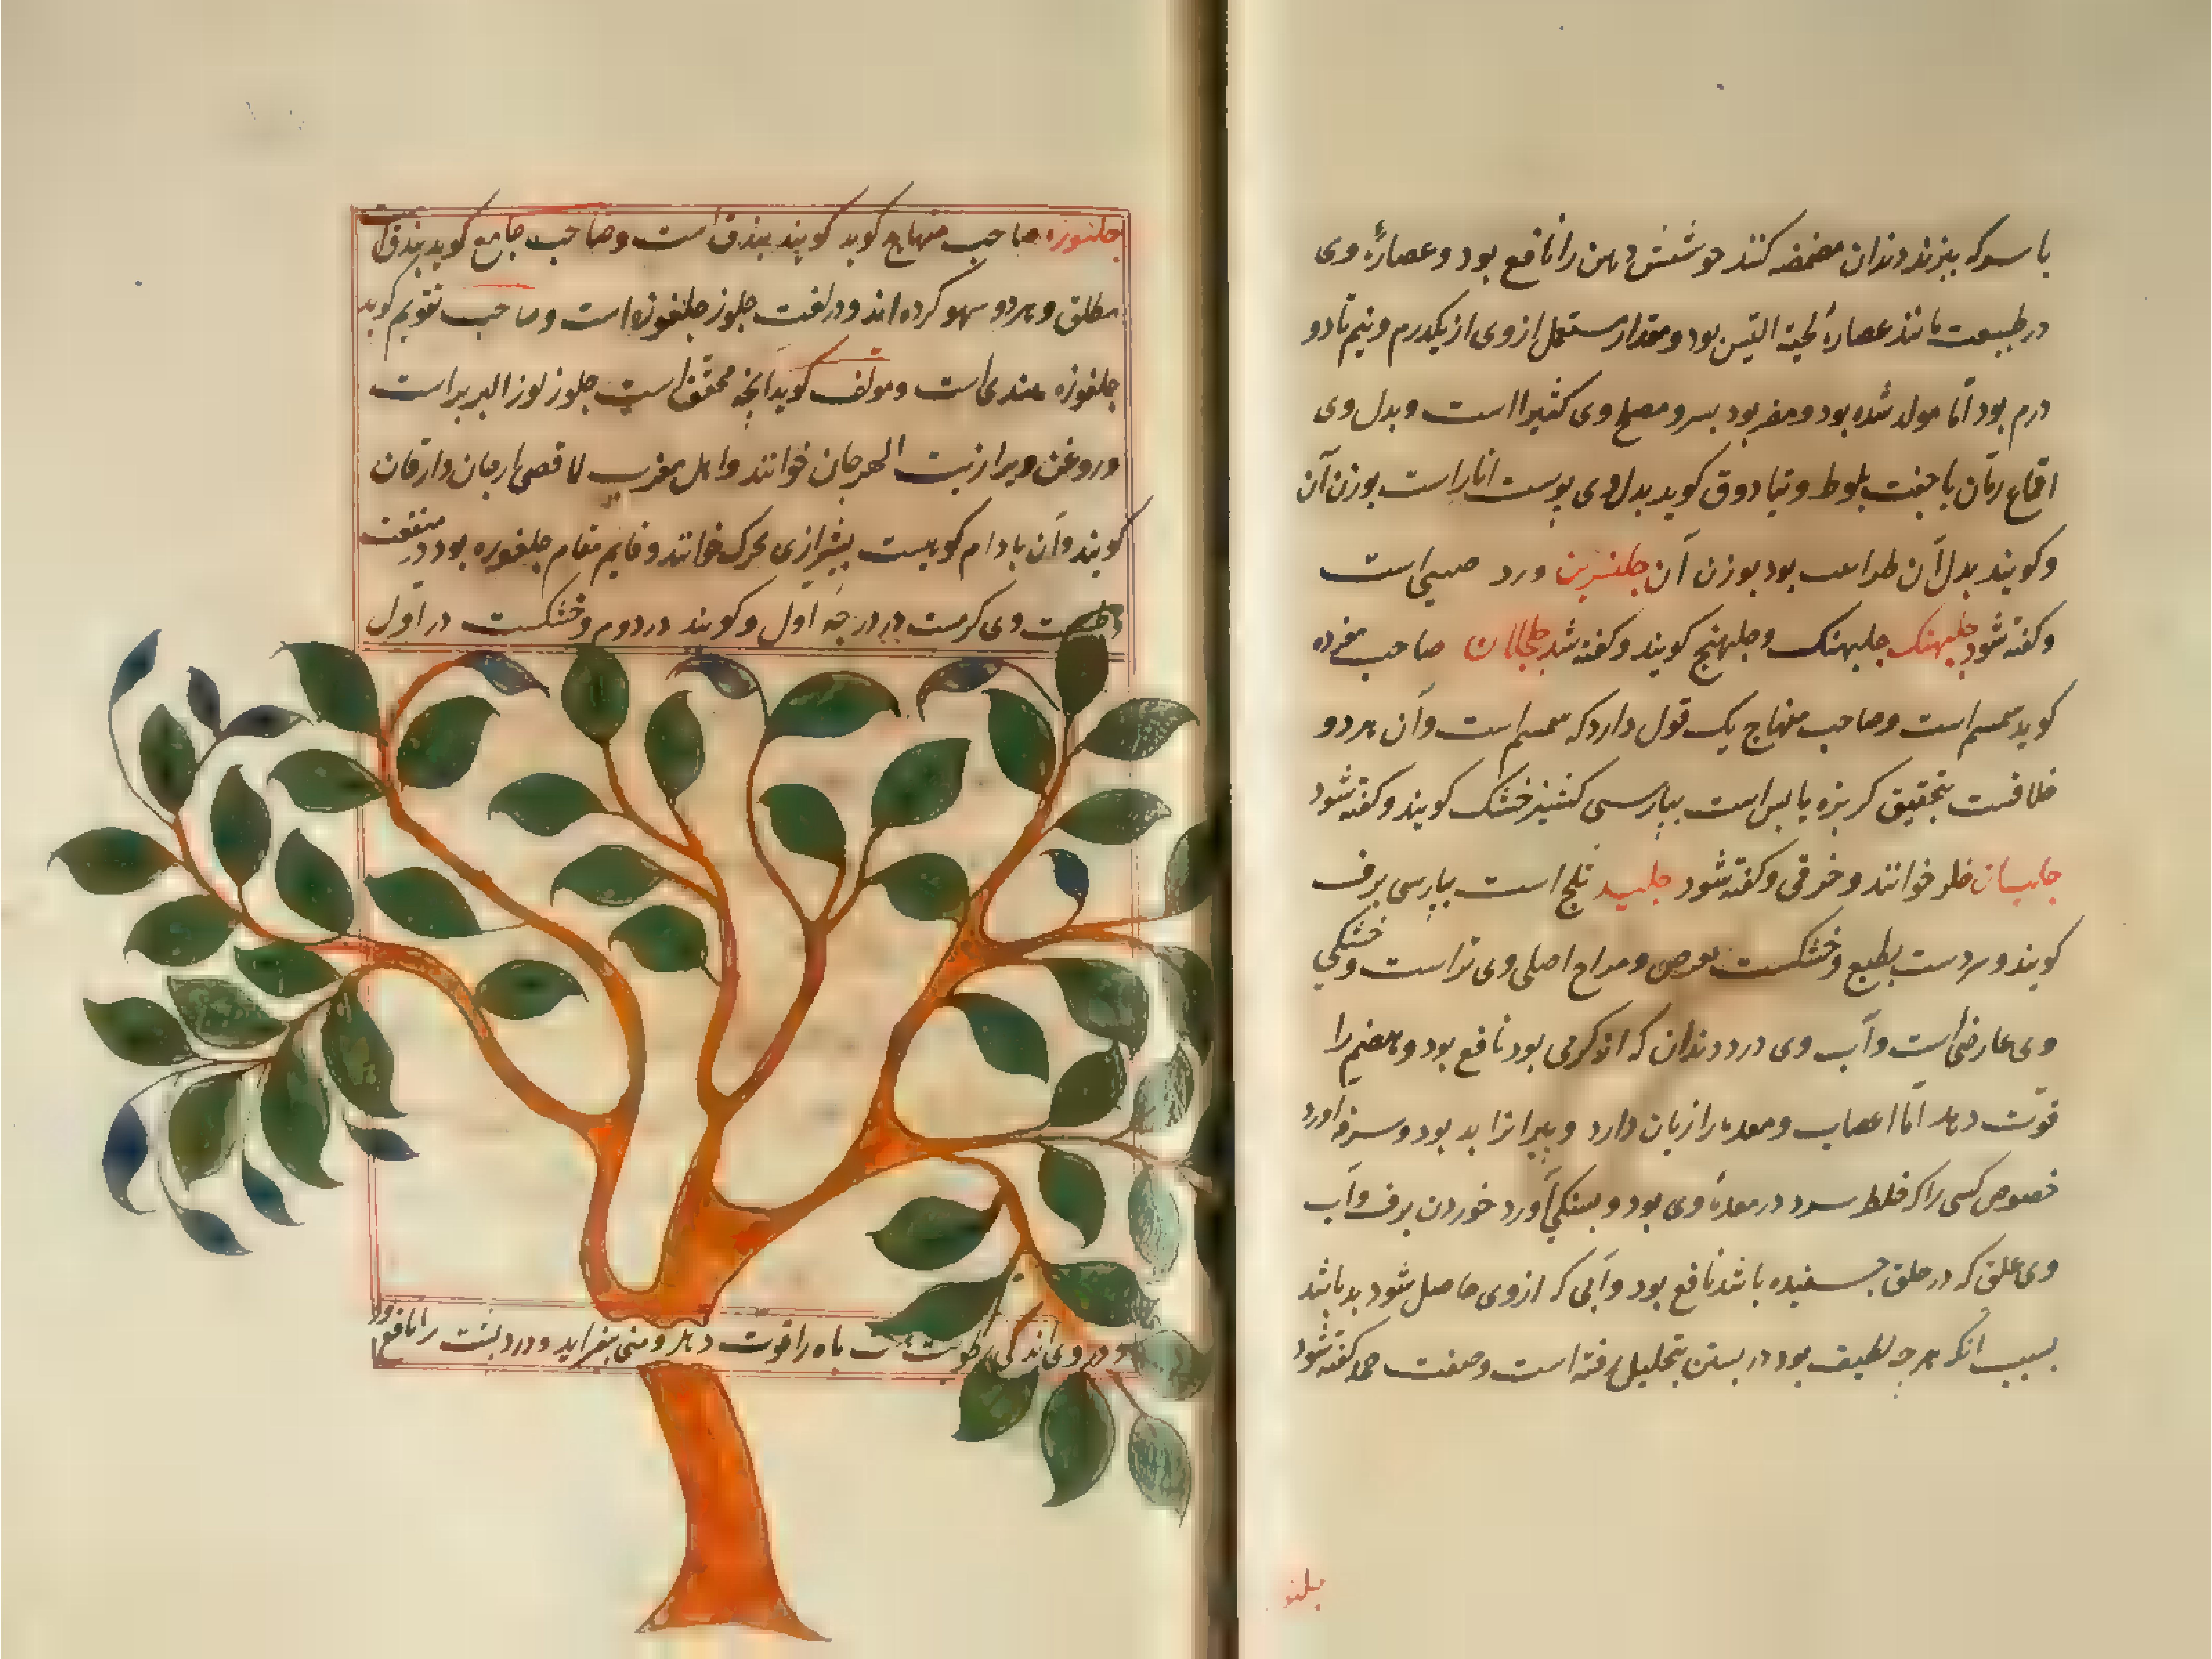 با سرکه بپزند و بدان مضمضه کنند جوشش دهن را نافع بود و عصارهٔ وی
در طبیعت مانند عصارهٔ لحیة التیس بود و مقدار مستعمل از وی از یکدرم و نیم تا دو
درم بود اما مولد سده بود و مضر بود بسر و مصلح وی کثیرا است و بدل وی
اقماع رمّان با جفت بلوط و تیادوق کوید بدل وی پوست انار است بوزن آن
و کویند بدل آن طراثیث بود بوزن آن جلنسرین ورد صینی است
و کفته شود جلبهنک جلبهنک و جلبهنج کویند و کفته شد جلجلان صاحب مفرده
کوید سمسم است و صاحب منهاج یک قول دارد که سمسم است و آن هر دو
خلافست بتحقیق کزبره یابس است بپارسی کشنیز خشک کویند و کفته شود
جلبان خلر خوانند و خرقی و کفته شود جلید ثلج است بپارسی برف
کویند و سردست بطبع و خشکست بعرض و مزاج اصلی وی تر است و خشکی
وی عارضی است و آب وی درد دندان که از کرمی بود نافع بود و هضم را
قوّت دهد امّا اعصاب و معده را زیان دارد و پیرانرا بد بود و سرفه آورد
خصوص کسی را که خلط سرد در معدهٔ وی بود و تشنکی آورد خوردن برف و آب
وی علق که در حلق چسفیده باشد نافع بود و آبی که از وی حاصل شود بد باشد
بسبب آنکه هرچه لطیف بود در بستن بتحلیل رفته است و صفت جمد کفته شود
جلنو
جلنوزه صاحب منهاج کوید کویند بندق است و صاحب جامع کوید بندق است
مطلق و هر دو سهو کرده اند و در لغت جلوز جلغوزه است و صاحب تقویم کوید
جلغوزه هندی است و مولف کوید آنچه محقّق است جلوز لوز البربر است
و روغن ویرا زیت الهرجان خوانند و اهل مغرب الاقصی ارجان و ارقان
کویند و آن بادام کوهیست بشیرازی بخرک خوانند و قایم مقام جلغوزه بود در منفعت
و طبیعت وی کرمست در درجه اول و کویند در دوم و خشکست در اول
و در وی اندکی رطوبت هست باه را قوت دهد و منی بیفزاید و درد پشت را نافع بود